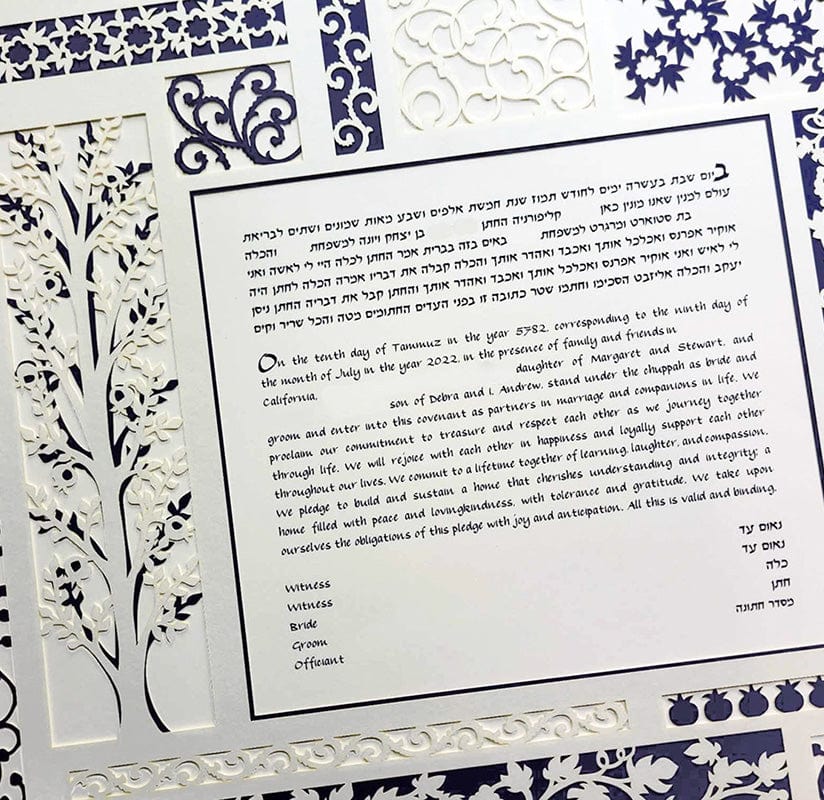 ביום שבת בעשרה ימים לחודש תמוז שנת חמשת אלפים ושבע מאות שמונים ושתים לבריאת
עולם למנין שאנו מונין כאן קליפורניה החתן בן יצחק ויונה למשפחת והכלה
בת סטוארט ומרגרט למשפחת באים בזה בברית אמר החתן לכלה היי לי לאשה ואני
אוקיר אפרנס ואכלכל אותך ואכבד ואהדר אותך והכלה קבלה את דבריו אמרה הכלה לחתן היה
לי לאיש ואני אוקיר אפרנס ואכלכל אותך ואכבד ואהדר אותך והחתן קבל את דבריה החתן ניסן
יעקב והכלה אליזבט הסכימו וחתמו שטר כתובה זו בפני העדים החתומים מטה והכל שריר וקים
On the tenth day of Tammuz in the year 5782, corresponding to the ninth day of
the month of July in the year 2022, in the presence of family and friends in
California, daughter of Margaret and Stewart, and
son of Debra and I. Andrew, stand under the chuppah as bride and
groom and enter into this covenant as partners in marriage and companions in life. We
proclaim our commitment to treasure and respect each other as we journey together
through life. We will rejoice with each other in happiness and loyally support each other
throughout our lives. We commit to a lifetime together of learning, laughter, and compassion.
We pledge to build and sustain a home that cherishes understanding and integrity; a
home filled with peace and lovingkindness, with tolerance and gratitude. We take upon
ourselves the obligations of this pledge with joy and anticipation. All this is valid and binding.
Witness נאום עד
Witness נאום עד
Bride כלה
Groom חתן
Officiant מסדר חתונה